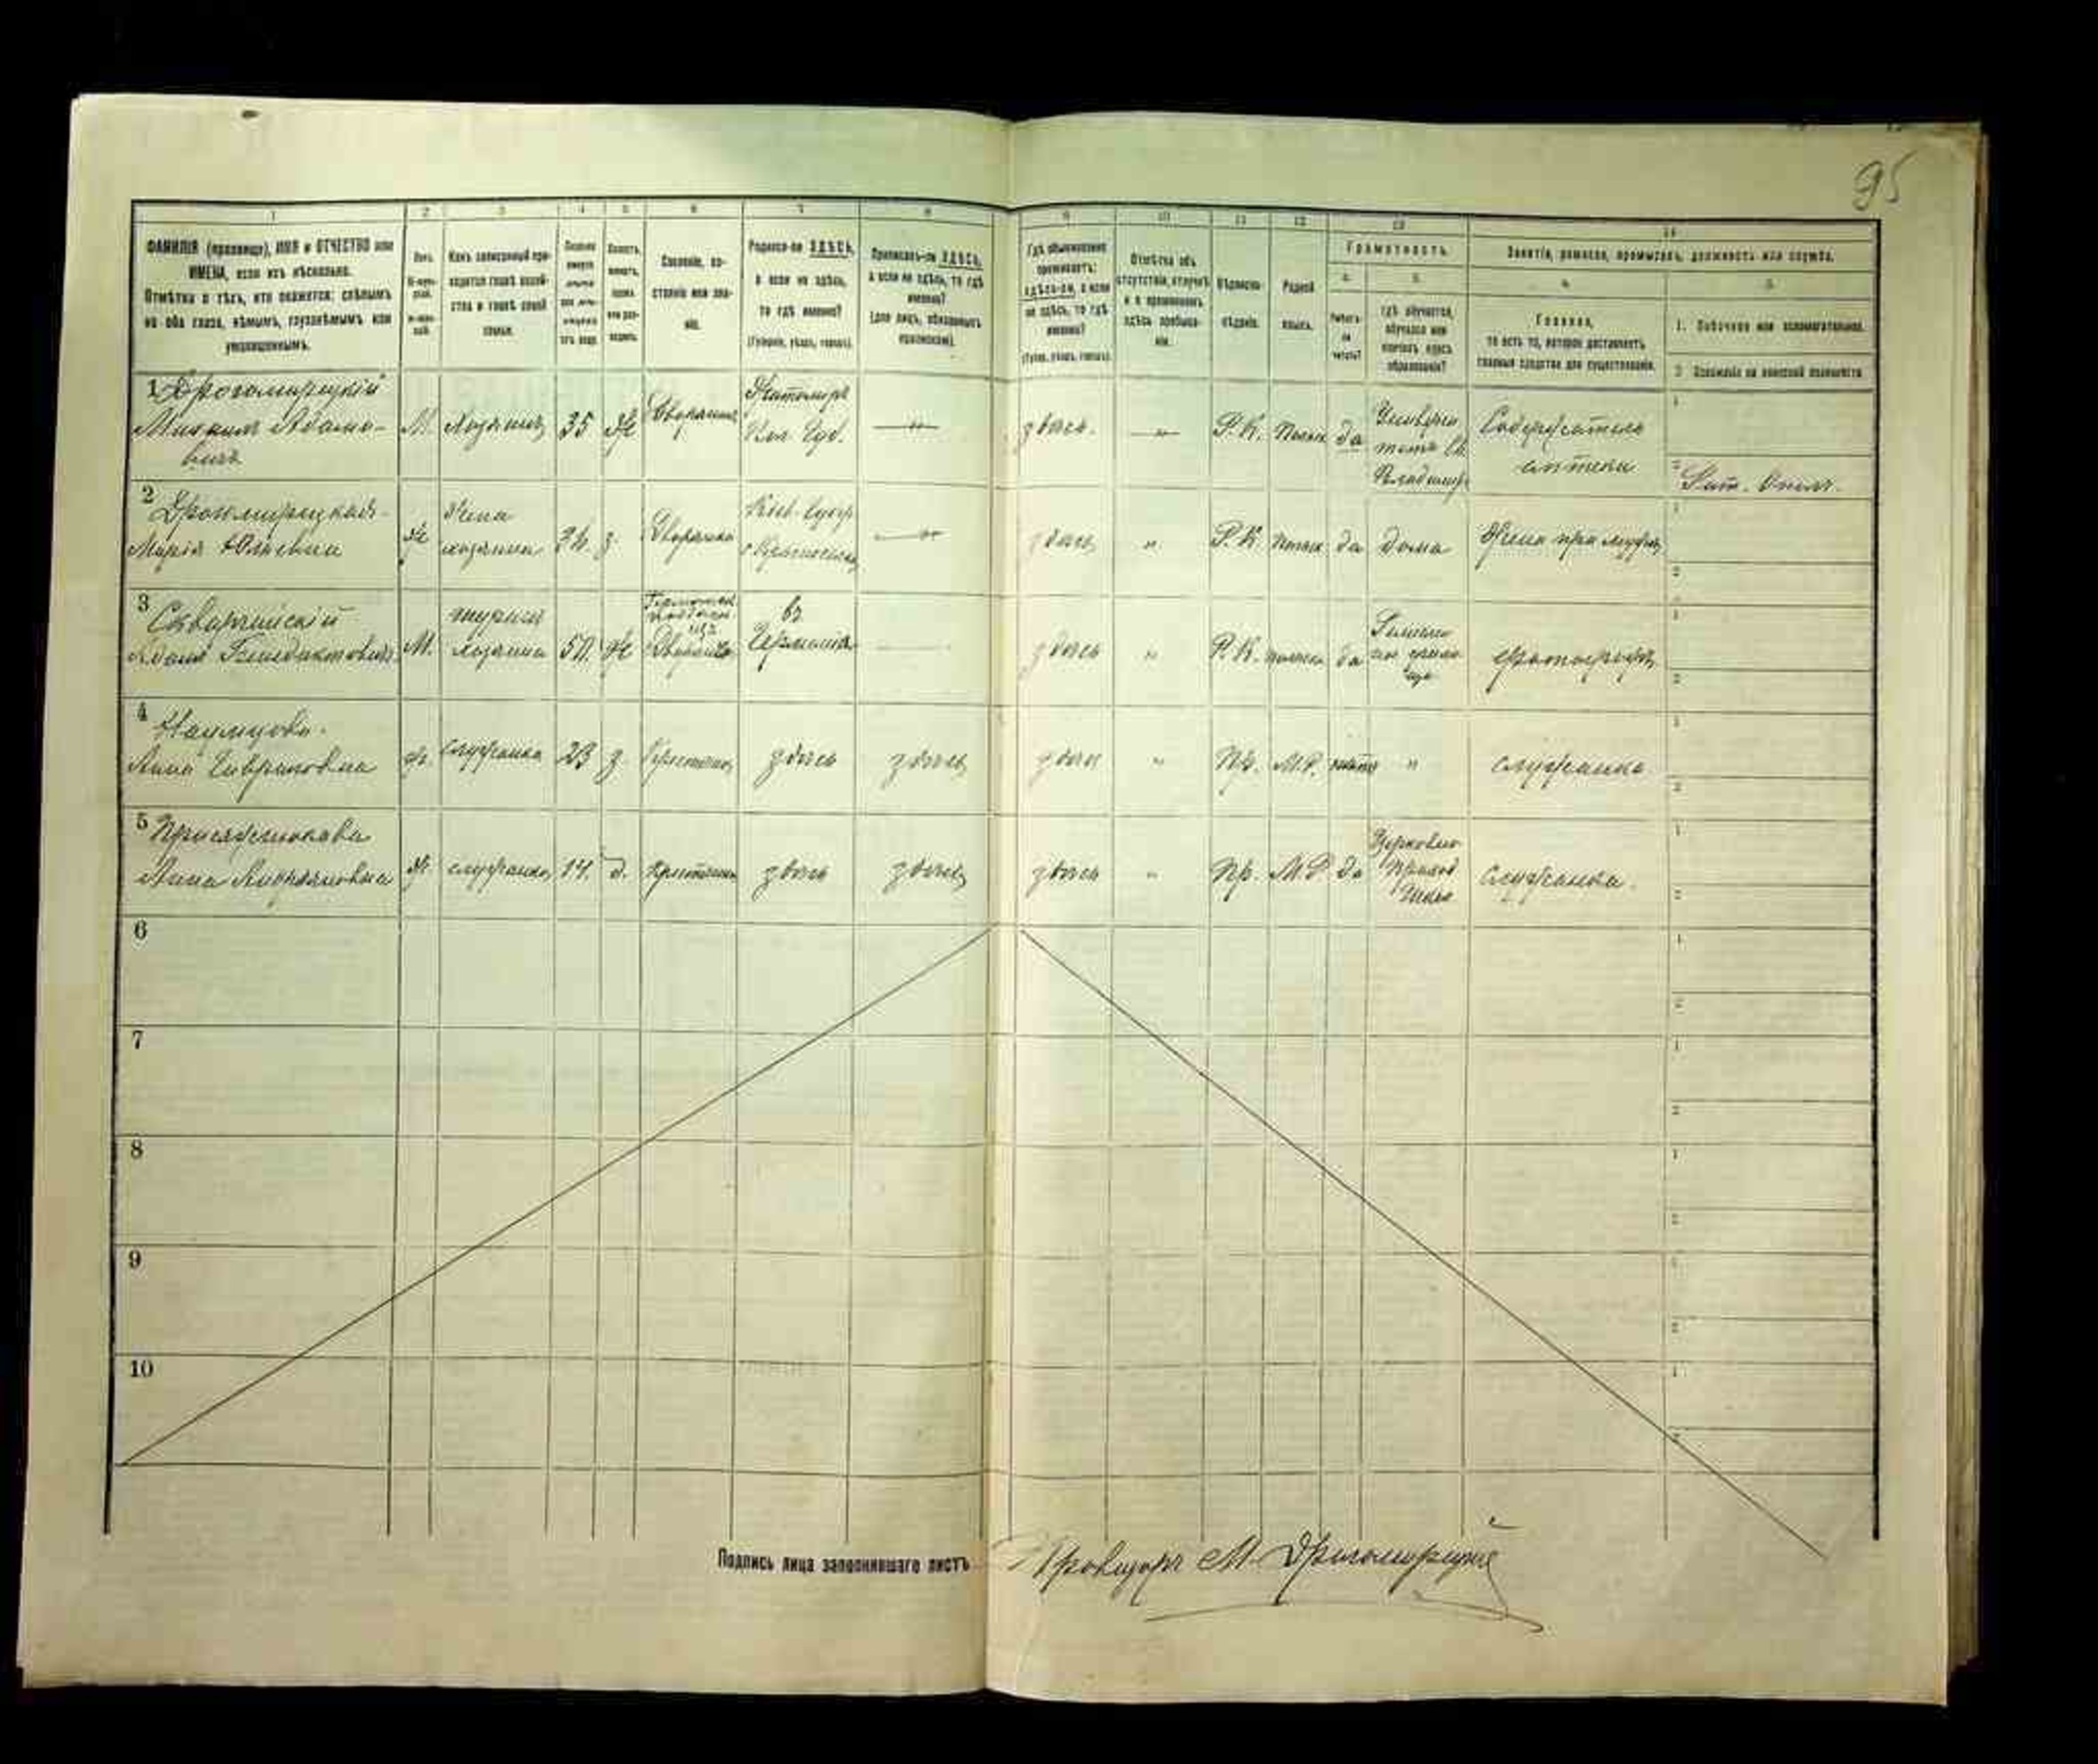 95
1 2 3 4 5 6 7 8 9 10 11 12 13 14
ФАМИЛІЯ (прозвище), ИМЯ и ОТЧЕСТВО или
ИМЕНА, если ихъ нѣсколько.
Отмѣтка о тѣхъ, кто окажется: слѣпымъ
на оба глаза, нѣмымъ, глухонѣмымъ или
умалишеннымъ.
Какъ записанный при-
ходится главѣ хозяй-
ства и главѣ своей
семьи.
Сословіе, со-
стояніе или зва-
ніе.
Родился-ли ЗДѢСЬ,
а если не здѣсь,
то гдѣ именно?
(Губернія, уѣздъ, городъ).
Приписанъ-ли ЗДѢСЬ,
а если не здѣсь, то гдѣ
именно?
(для лицъ, обязанныхъ
припискою).
Гдѣ обыкновенно
проживаетъ:
здѣсь-ли, а если
не здѣсь, то гдѣ
именно?
(Губ., уѣздъ, городъ).
Отмѣтка объ
отсутствіи, отлучкѣ
и о временномъ
здѣсь пребыва-
ніи.
Вѣроиспо-
вѣданіе.
Родной
языкъ.
Грамотность.
а.
Умѣетъ-
ли
читать?
б.
гдѣ обучается,
обучался или
кончилъ курсъ
образованія?
Занятіе, ремесло, промыселъ, должность или служба.
а.
Главное,
то есть то, которое доставляетъ
главныя средства для существованія.
б.
1. Побочное или вспомогательное.
2. Положеніе по воинской повинности
1 Дрогомирецкій
Михаилъ Адамо-
вичъ
М. хозяинъ 35 ж Дворянинъ
Житомиръ
Вол. Губ.
здѣсь. Р.К. Польск да
Универси
тетъ Св.
Владимир
Содержатель
аптеки
2 Дрогомирецкая
Марія Юльевна
ж
жена
хозяина
з. Дворянка
Кіев. Губер
здѣсь Р.К. Польск да дома Жена при мужѣ
3
Адамъ Бенедиктовичъ
М.
хозяина 50 ж
въ
Германіи
здѣсь Р.К. польск да фотографъ
4 Наумцова
Анна Гавриловна
ж. служанка 23 з Крестьян здѣсь здѣсь здѣсь Пр. М.Р. нѣтъ служанка
5 Присяжнюкова
Анна Андреяновна
ж служанка 14. д. крестьян здѣсь здѣсь здѣсь Пр. М.Р. да
Церковно
приход
школа
служанка.
6
7
8
9
10
Подпись лица заполнившаго листъ Провизоръ М. Дрогомирецкій